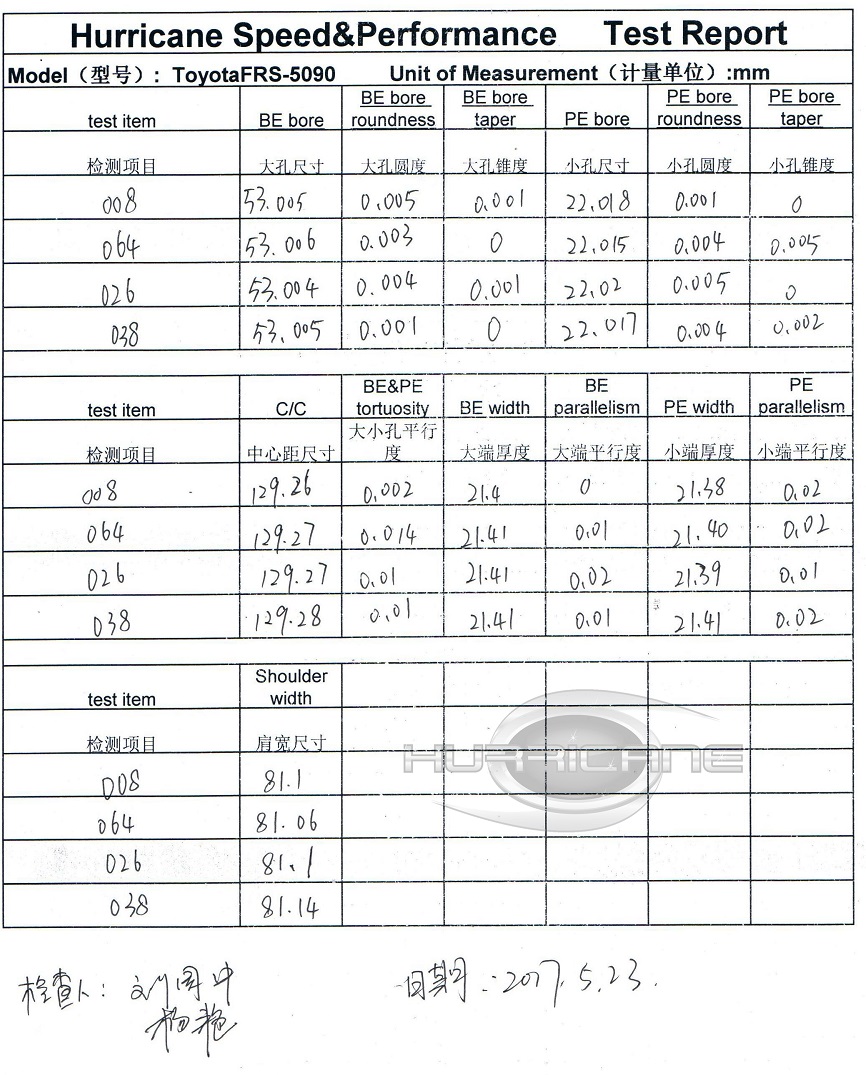 Hurricane Speed&Performance Test Report
Model（型号）: ToyotaFRS-5090 Unit of Measurement（计量单位）:mm
test item BE bore BE bore roundness BE bore taper PE bore PE bore roundness PE bore taper
检测项目 大孔尺寸 大孔圆度 大孔锥度 小孔尺寸 小孔圆度 小孔锥度
008 53.005 0.005 0.001 22.018 0.001 0
064 53.006 0.003 0 22.015 0.004 0.005
026 53.004 0.004 0.001 22.02 0.005 0
038 53.005 0.001 0 22.017 0.004 0.002
test item C/C BE&PE tortuosity BE width BE parallelism PE width PE parallelism
检测项目 中心距尺寸 大小孔平行度 大端厚度 大端平行度 小端厚度 小端平行度
008 129.26 0.002 21.4 0 21.38 0.02
064 129.27 0.014 21.41 0.01 21.40 0.02
026 129.27 0.01 21.41 0.02 21.39 0.01
038 129.28 0.01 21.41 0.01 21.41 0.02
test item Shoulder width
检测项目 肩宽尺寸
HURRICANE
008 81.1
064 81.06
026 81.1
038 81.14
检查人: 日期: 2017.5.23.